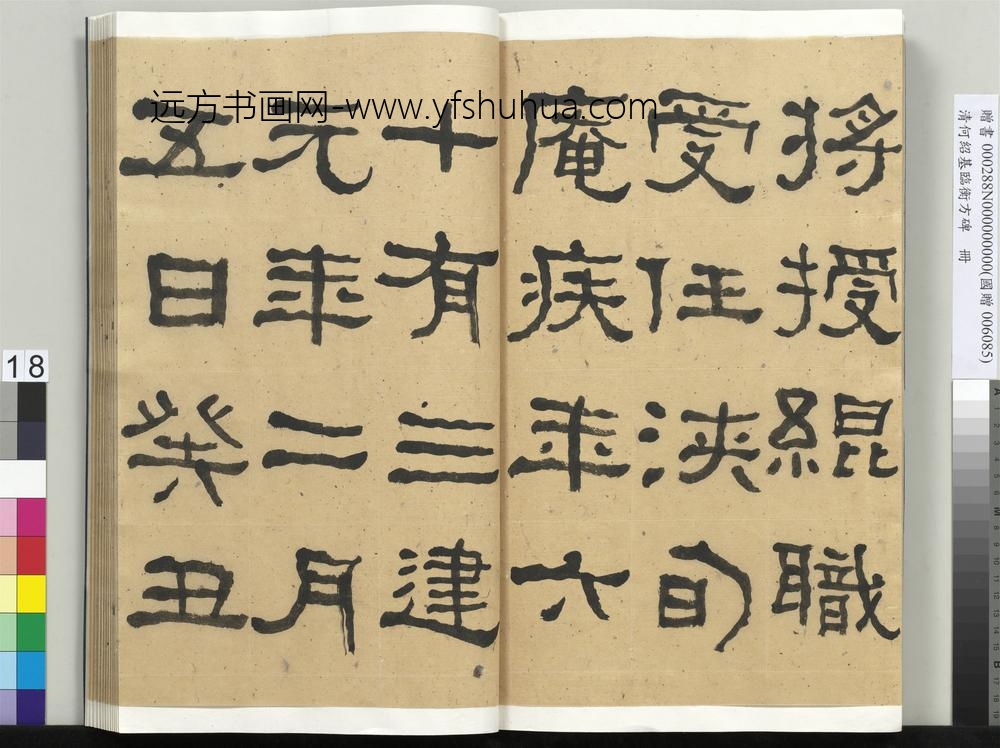 将授緄職
受任浹旬
庵疾年六
十有三建
元年二月
五日癸丑
远方书画网-www.yfshuhua.com
贈書 000288N000000000(國贈 006085)
清何紹基臨衡方碑 冊
18